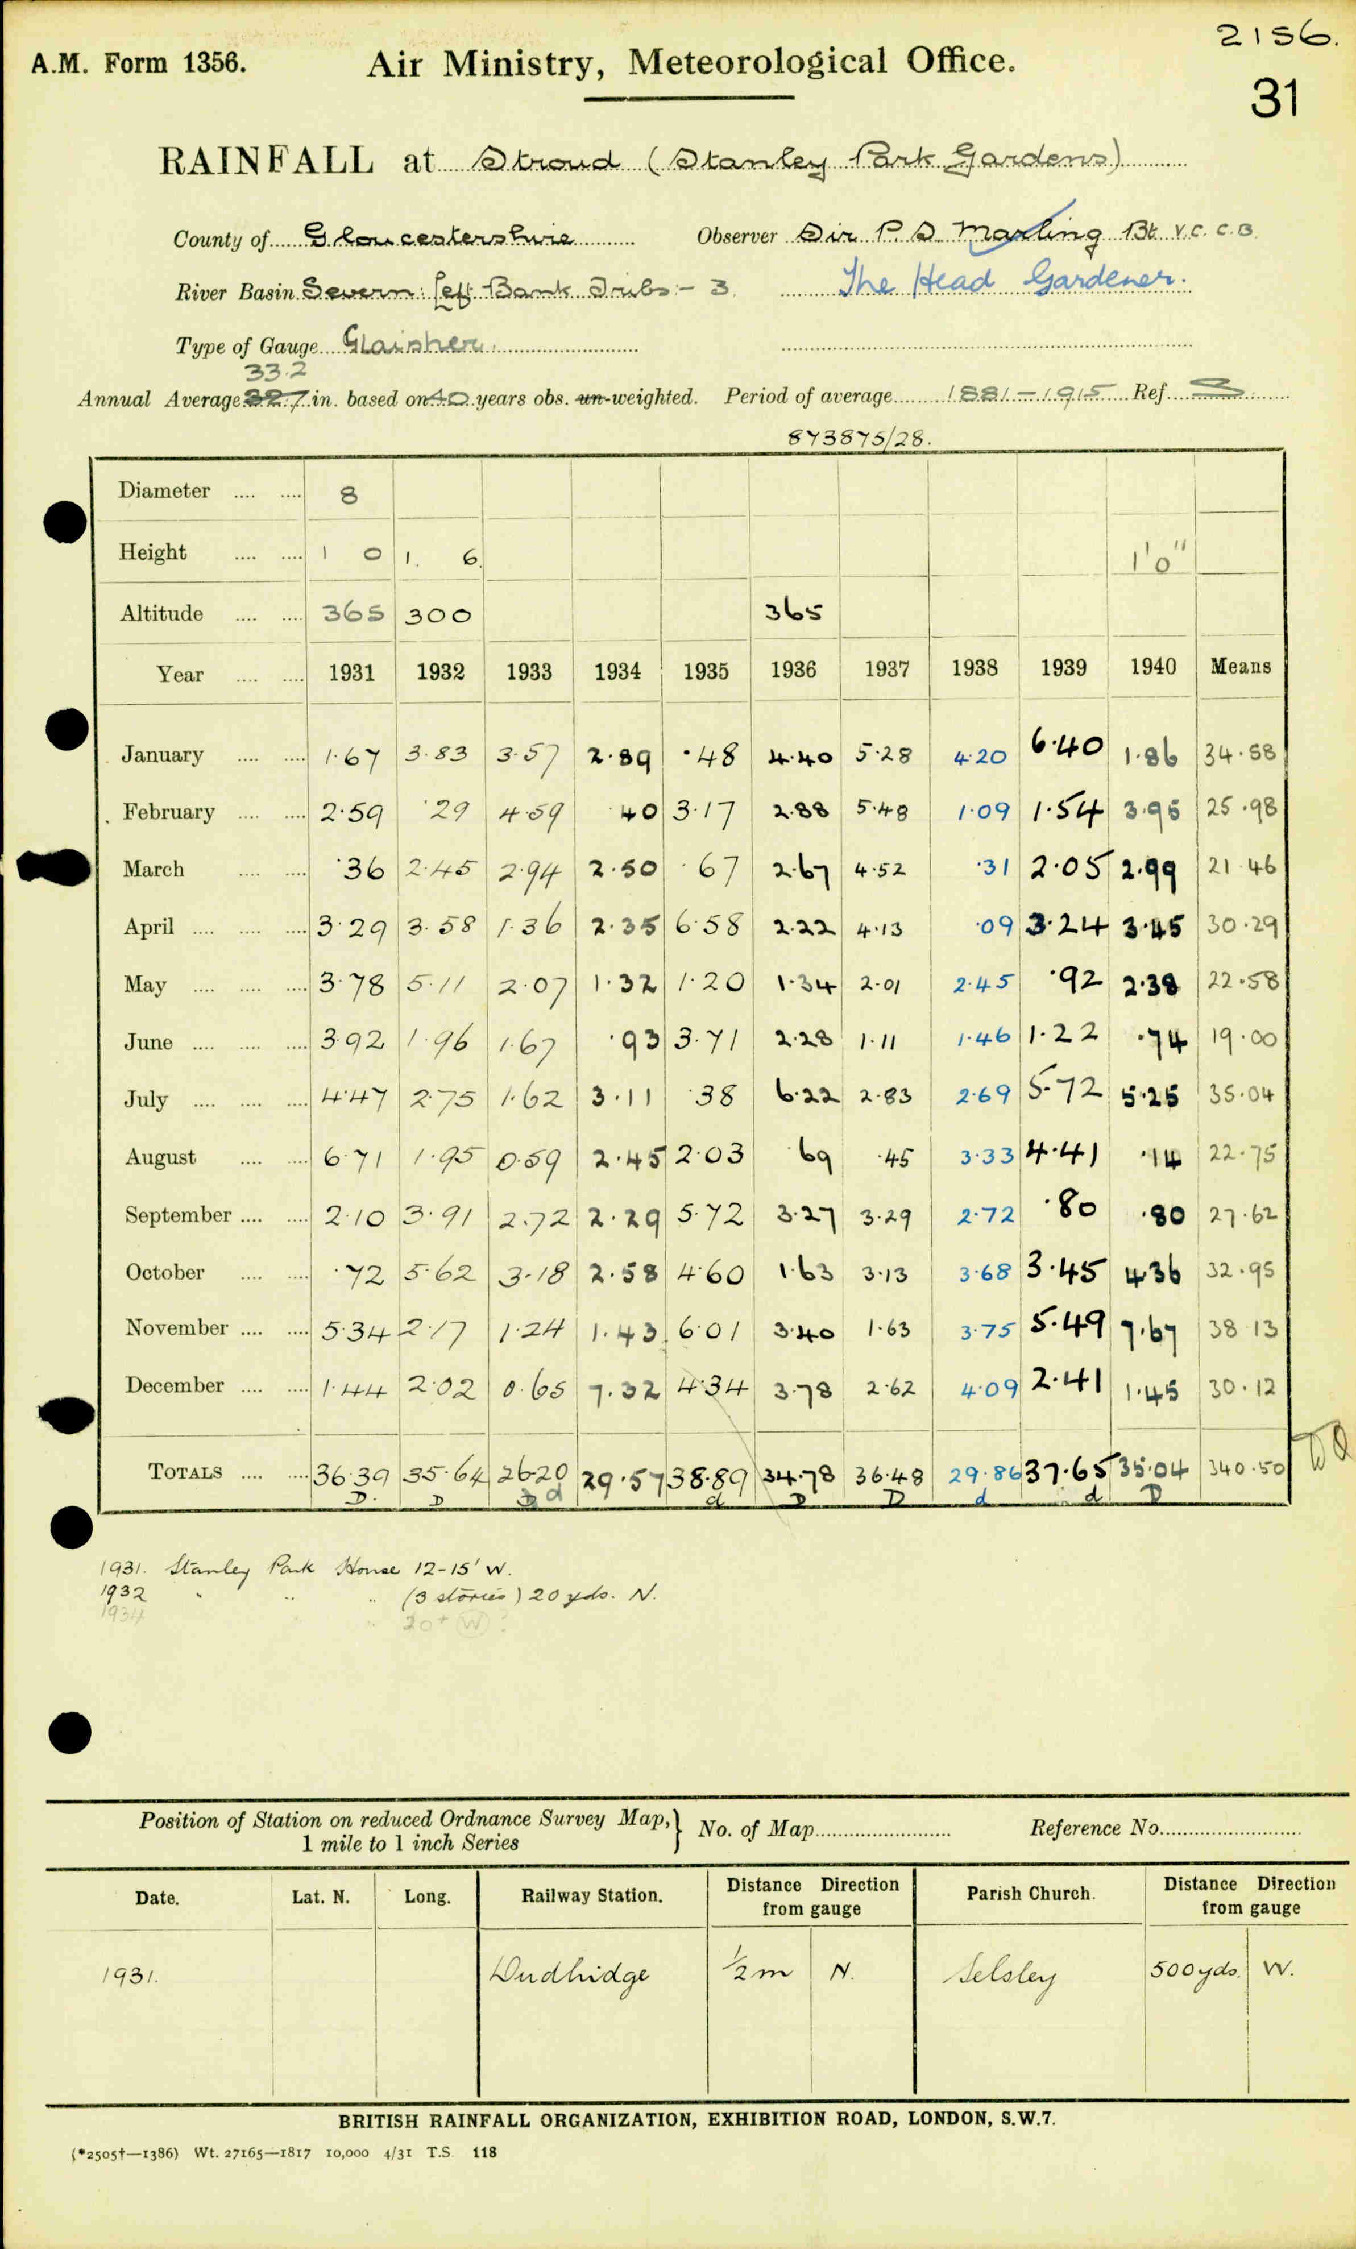 2156.
A.M. Form 1356. Air Ministry, Meteorological Office.
31
RAINFALL at Stroud (Stanley Park Gardens)
County of Gloucestershire Observer Sir P. S. Marling Bt. V.C. C.B.
River Basin Severn: Left Bank Tribs - 3. The Head Gardener.
Type of Gauge Glaisher
33.2
Annual Average 32.7 in. based on 40 years obs. un-weighted. Period of average 1881-1915 Ref. 3
873875/28.
Diameter .... .... 8
Height .... .... 1 0 1. 6. 1'0"
Altitude .... .... 365 300 365
Year .... .... 1931 1932 1933 1934 1935 1936 1937 1938 1939 1940 Means
January .... .... 1.67 3.83 3.57 2.89 .48 4.40 5.28 4.20 6.40 1.86 34.58
February .... .... 2.59 .29 4.59 .40 3.17 2.88 5.48 1.09 1.54 3.95 25.98
March .... .... .36 2.45 2.94 2.50 .67 2.67 4.52 .31 2.05 2.99 21.46
April .... .... .... 3.29 3.58 1.36 2.35 6.58 2.22 4.13 .09 3.24 3.45 30.29
May .... .... .... 3.78 5.11 2.07 1.32 1.20 1.34 2.01 2.45 .92 2.38 22.58
June .... .... .... 3.92 1.96 1.67 .93 3.71 2.28 1.11 1.46 1.22 .74 19.00
July .... .... .... 4.47 2.75 1.62 3.11 .38 6.22 2.83 2.69 5.72 5.25 35.04
August .... .... 6.71 1.95 0.59 2.45 2.03 69 .45 3.33 4.41 .14 22.75
September .... .... 2.10 3.91 2.72 2.29 5.72 3.27 3.29 2.72 .80 .80 27.62
October .... .... .72 5.62 3.18 2.58 4.60 1.63 3.13 3.68 3.45 4.36 32.95
November .... .... 5.34 2.17 1.24 1.43 6.01 3.40 1.63 3.75 5.49 7.67 38.13
December .... .... 1.44 2.02 0.65 7.32 4.34 3.78 2.62 4.09 2.41 1.45 30.12
TOTALS .... .... 36.39 35.64 26.20 29.57 38.89 34.78 36.48 29.86 37.65 35.04 340.50
D. D d d D D d d D
1931. Stanley Park House 12-15' W.
1932 " " " (3 stories) 20 yds. N.
1934 " 20+ W ?
Position of Station on reduced Ordnance Survey Map, } No. of Map Reference No.
1 mile to 1 inch Series
Date. Lat. N. Long. Railway Station. Distance from gauge Direction Parish Church. Distance from gauge Direction
1931. Dudbridge ½ m N. Selsley 500 yds. W.
BRITISH RAINFALL ORGANIZATION, EXHIBITION ROAD, LONDON, S.W.7.
(*2505†—1386) Wt. 27165—1817 10,000 4/31 T.S. 118